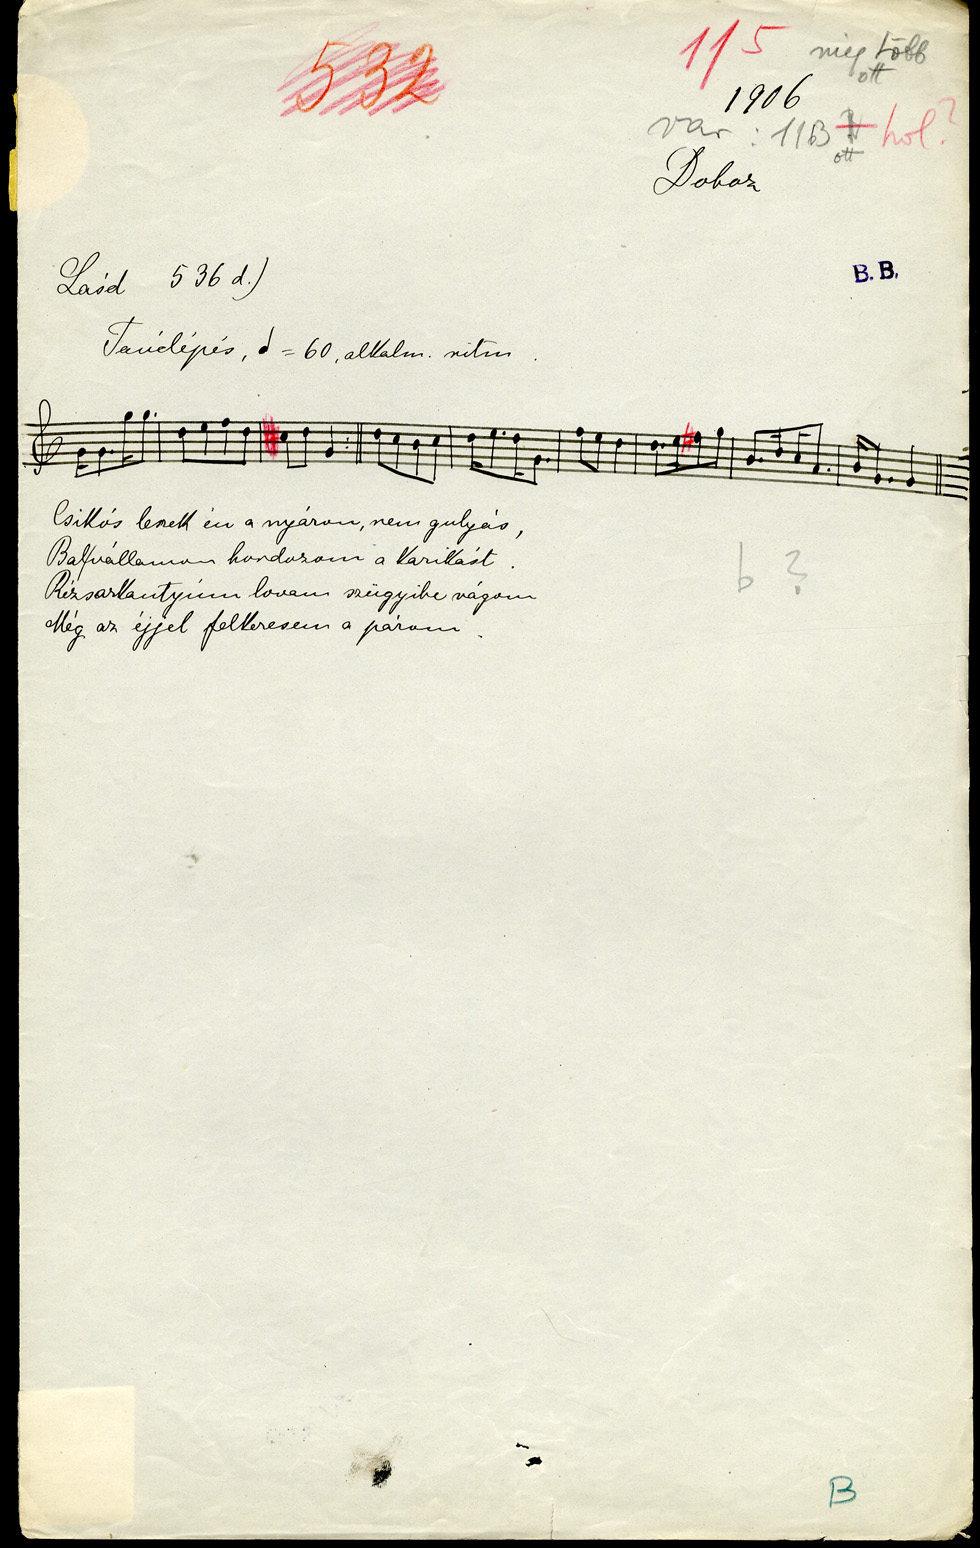 532
11/5 még több
ott
1906
var: 11B hol?
ott
Doboz
Lásd 536 d.)
B. B.
Tánclépés, = 60, alkalm. ritm.
Csikós leszek én a nyáron, nem gulyás,
Balfvállamon hordozom a karikást.
Rézsarkantyúm lovam szügyibe vágom
Még az éjjel felkeresem a párom.
b ?
B